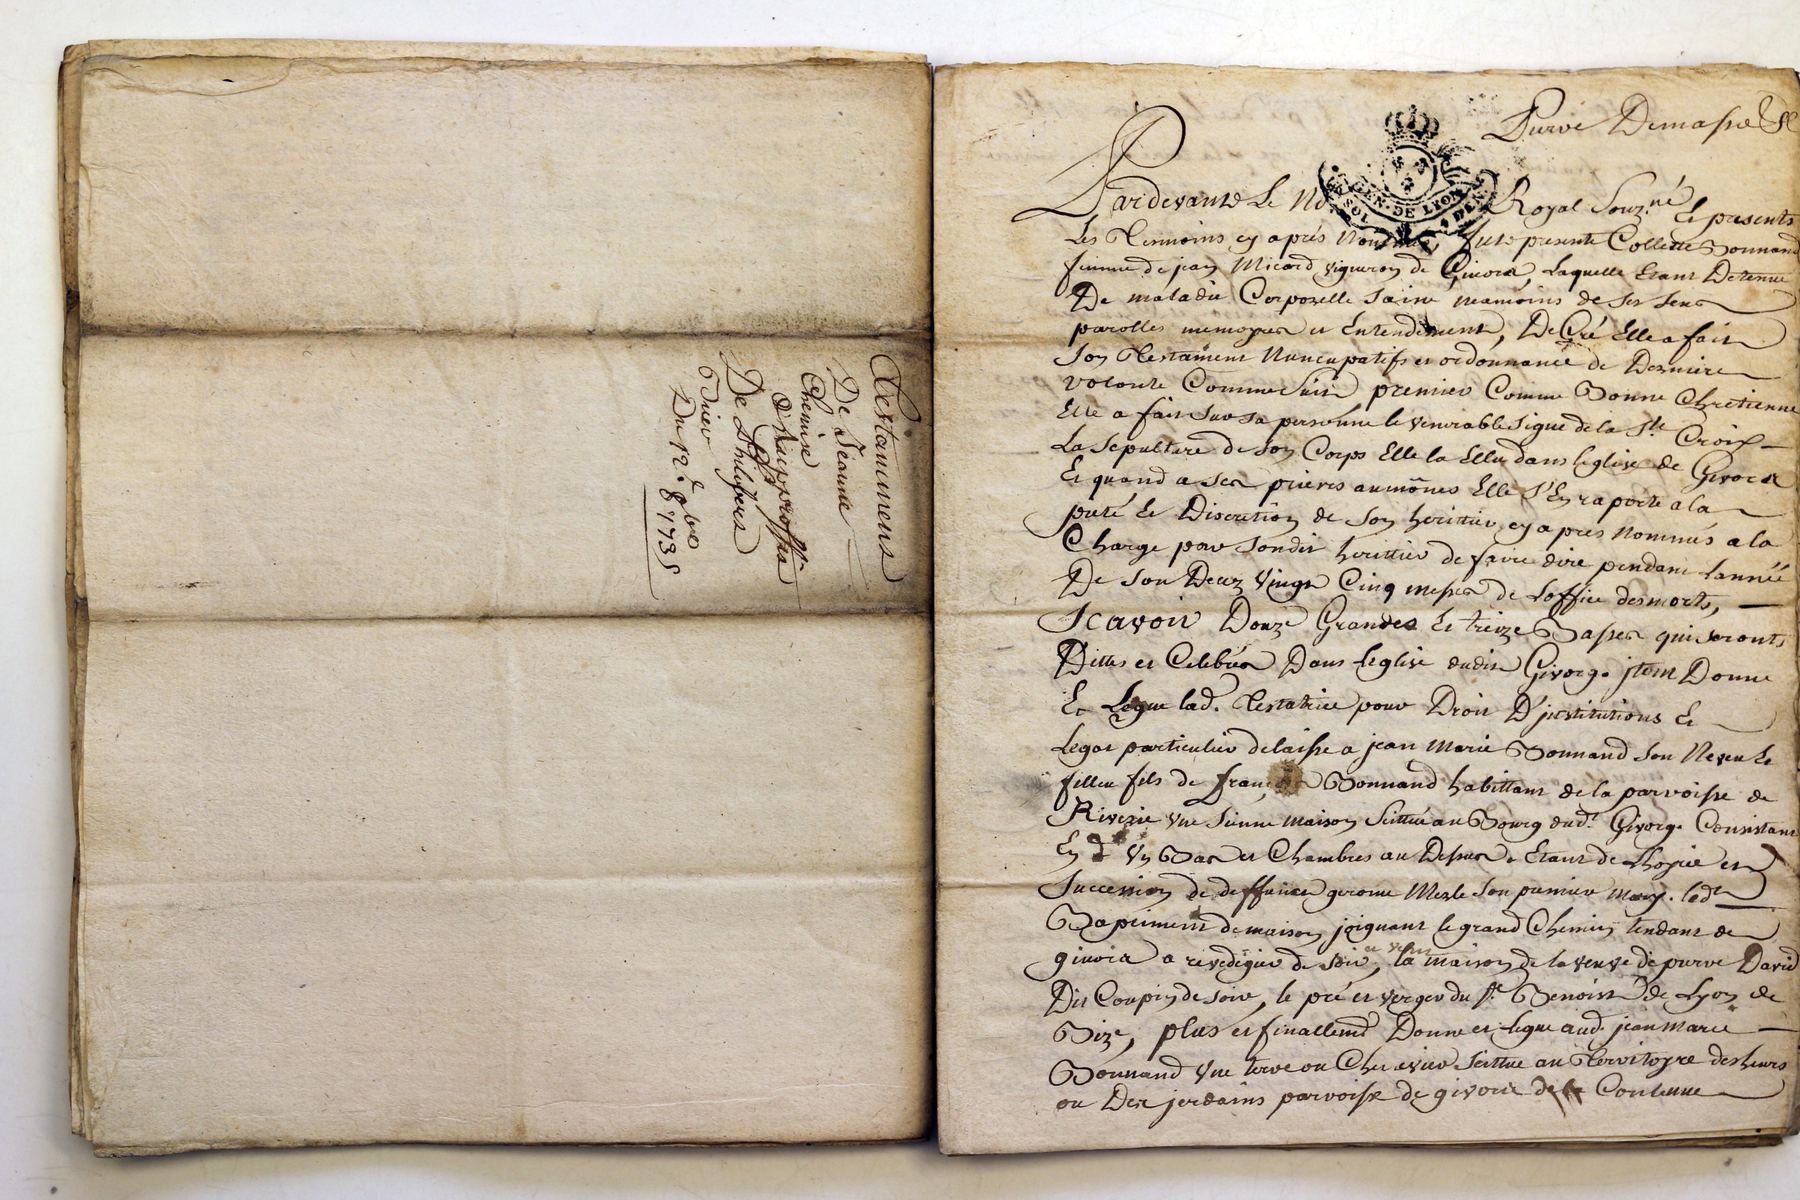 Testament
De Jeanne
Chemise
De Philipes
Du 12e 8bre 1735
GEN. DE LYON
SOL 4 DEN.
Pardevant Le No Royal Souz.né Et presents
Les Tesmoins cy aprés Nommés, fute presente Collette Bonnand
femme de jean Micard vigneron de Givors, laquelle Etant Detenue
De maladie Corporelle saine neamoins de ses sens
parolles memoyres et Entendement, De Gré Elle a fait
Son Testament Nuncupatifs et ordonnance de Derniere
volonté Comme Suit premier Comme Bonne Chretienne
Elle a fait sur sa personne le venerable signe de la Ste Croix
La Sepulture de son Corps Elle la Ellu dans leglise de Givors
Et quand a ses prieres aumônes Elle s'En raporte a la
pieté Et Discretion de son herittier cy apres Nommés a la
Charge par sondit herittier de faire dire pendant lannéé
De son Decez vingt Cinq messes de Loffice des morts,
Scavoir Douze Grandes Et treize Basses qui seront
Dittes et Celebrés Dans leglise dudit Givors. jtem Donne
Et Legue lad. Testatrice pour Droit D'institutions Et
Legat particulier delaisse a jean Marie Bonnand son Neveu Et
filleu fils de françois Bonnand habittant de la parroisse de
Riverie une sienne maison scittuée au Bourg dud. Givors. Consistant
En un Bas et Chambres au Dessus Etant de Lhoyrie et
Succession de deffunct gerome Merle son premier mary. lad.
Bapriment de maison joignant le grand Chemin tendant de
givors a rivedegier de soir, la maison de la veuve de pierre David
Dit Coupin de soir, le pré et verger du sr. Benoist de Lyon de
Bize, plus et finallemt Donne et legue aud. jean Marie
Bonnand une terre ou Chenevier scittue au Territoyre des heurs
ou Des jerdains parroisse de givors de Contenue